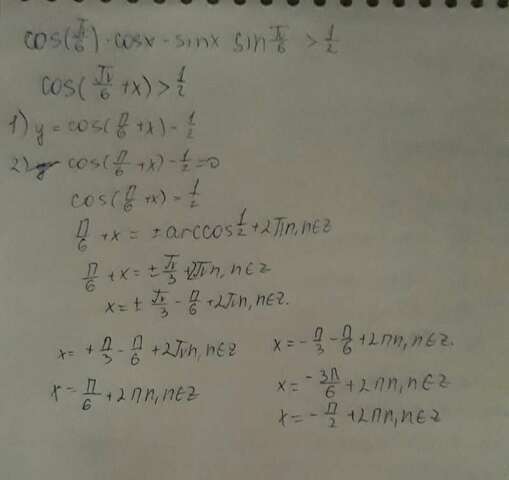 cos(π/6)·cosx - sinx sin π/6 > 1/2
cos(π/6 + x) > 1/2
1) y = cos(π/6 + x) - 1/2
2) cos(π/6 + x) - 1/2 = 0
cos(π/6 + x) = 1/2
π/6 + x = ± arccos 1/2 + 2πn, n∈z
π/6 + x = ± π/3 + 2πn, n∈z
x = ± π/3 - π/6 + 2πn, n∈z.
x = + π/3 - π/6 + 2πn, n∈z
x = π/6 + 2πn, n∈z
x = - π/3 - π/6 + 2πn, n∈z.
x = -3π/6 + 2πn, n∈z
x = - π/2 + 2πn, n∈z